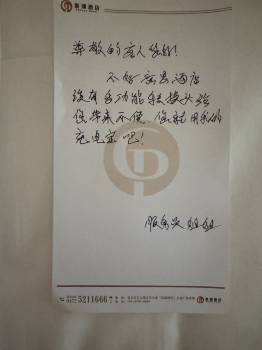 景湖酒店
尊敬的客人您好!
不好意思酒店
没有多功能转接头给
您带来不便.您就用我的
充电宝吧!
服务员 姐姐
5211666
景湖酒店